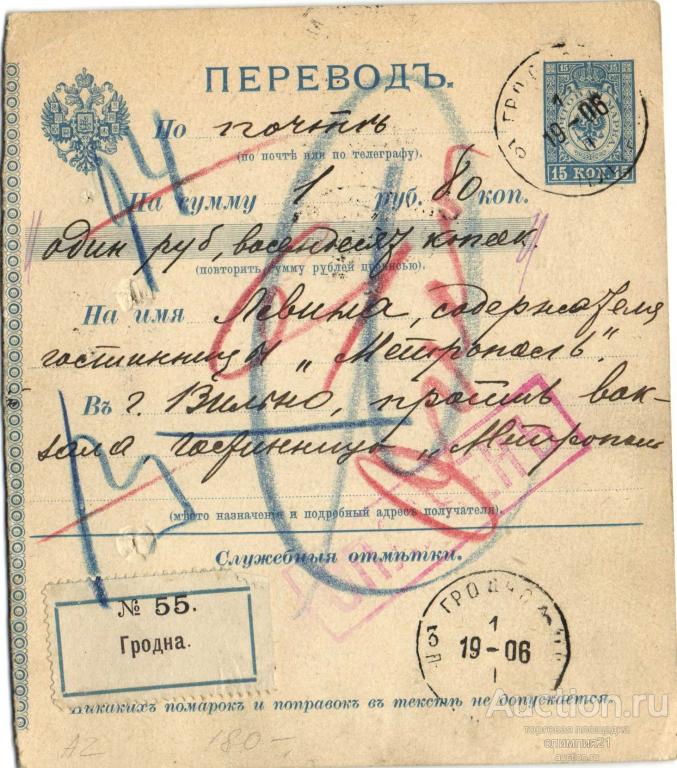 ПЕРЕВОДЪ.
По почтѣ
(по почтѣ или по телеграфу).
На сумму 1 руб. 80 коп.
один руб, восемдесят копѣек.
(повторить сумму рублей прописью).
На имя Левина, содержателя
гостинницы „Метрополь".
Въ г. Вильно, против вок-
зала, гостинницы „Метрополь
(мѣсто назначенія и подробный адресъ получателя).
Служебныя отмѣтки.
№ 55.
Гродна.
Никакихъ помарокъ и поправокъ въ текстѣ не допускается.
15 КОП 15
1
19-06
ГРОДНО
1
19-06
1
ОПЛАЧЕНЪ
AZ
180-
Auction.ru
торговая площадка
олимпия21
auction.ru